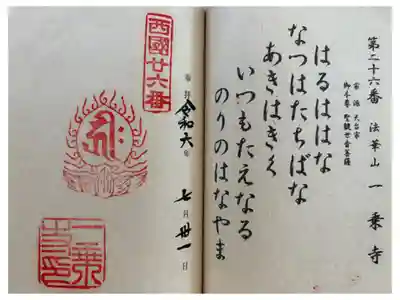 第二十六番 法華山 一乗寺
宗派 天台宗
御本尊 聖観世音菩薩
はるははな
なつはたちばな
あきはきく
いつもたえなる
のりのはなやま
西國廿六番
奉拝 令和六年 七月卅一日
一乗